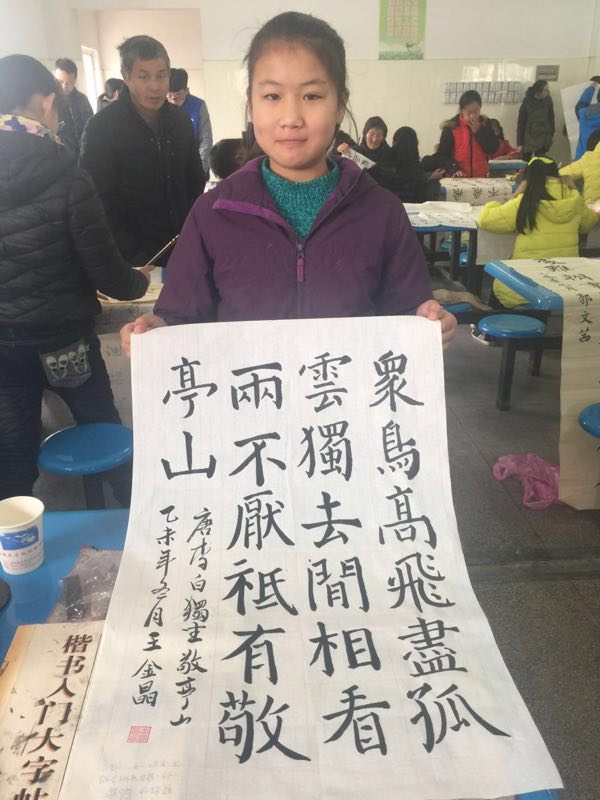 眾鳥髙飛盡孤
雲獨去閒相看
兩不厭祗有敬
亭山
唐李白獨坐敬亭山
乙未年冬月王金晶
楷书入门大字帖
郭文茜